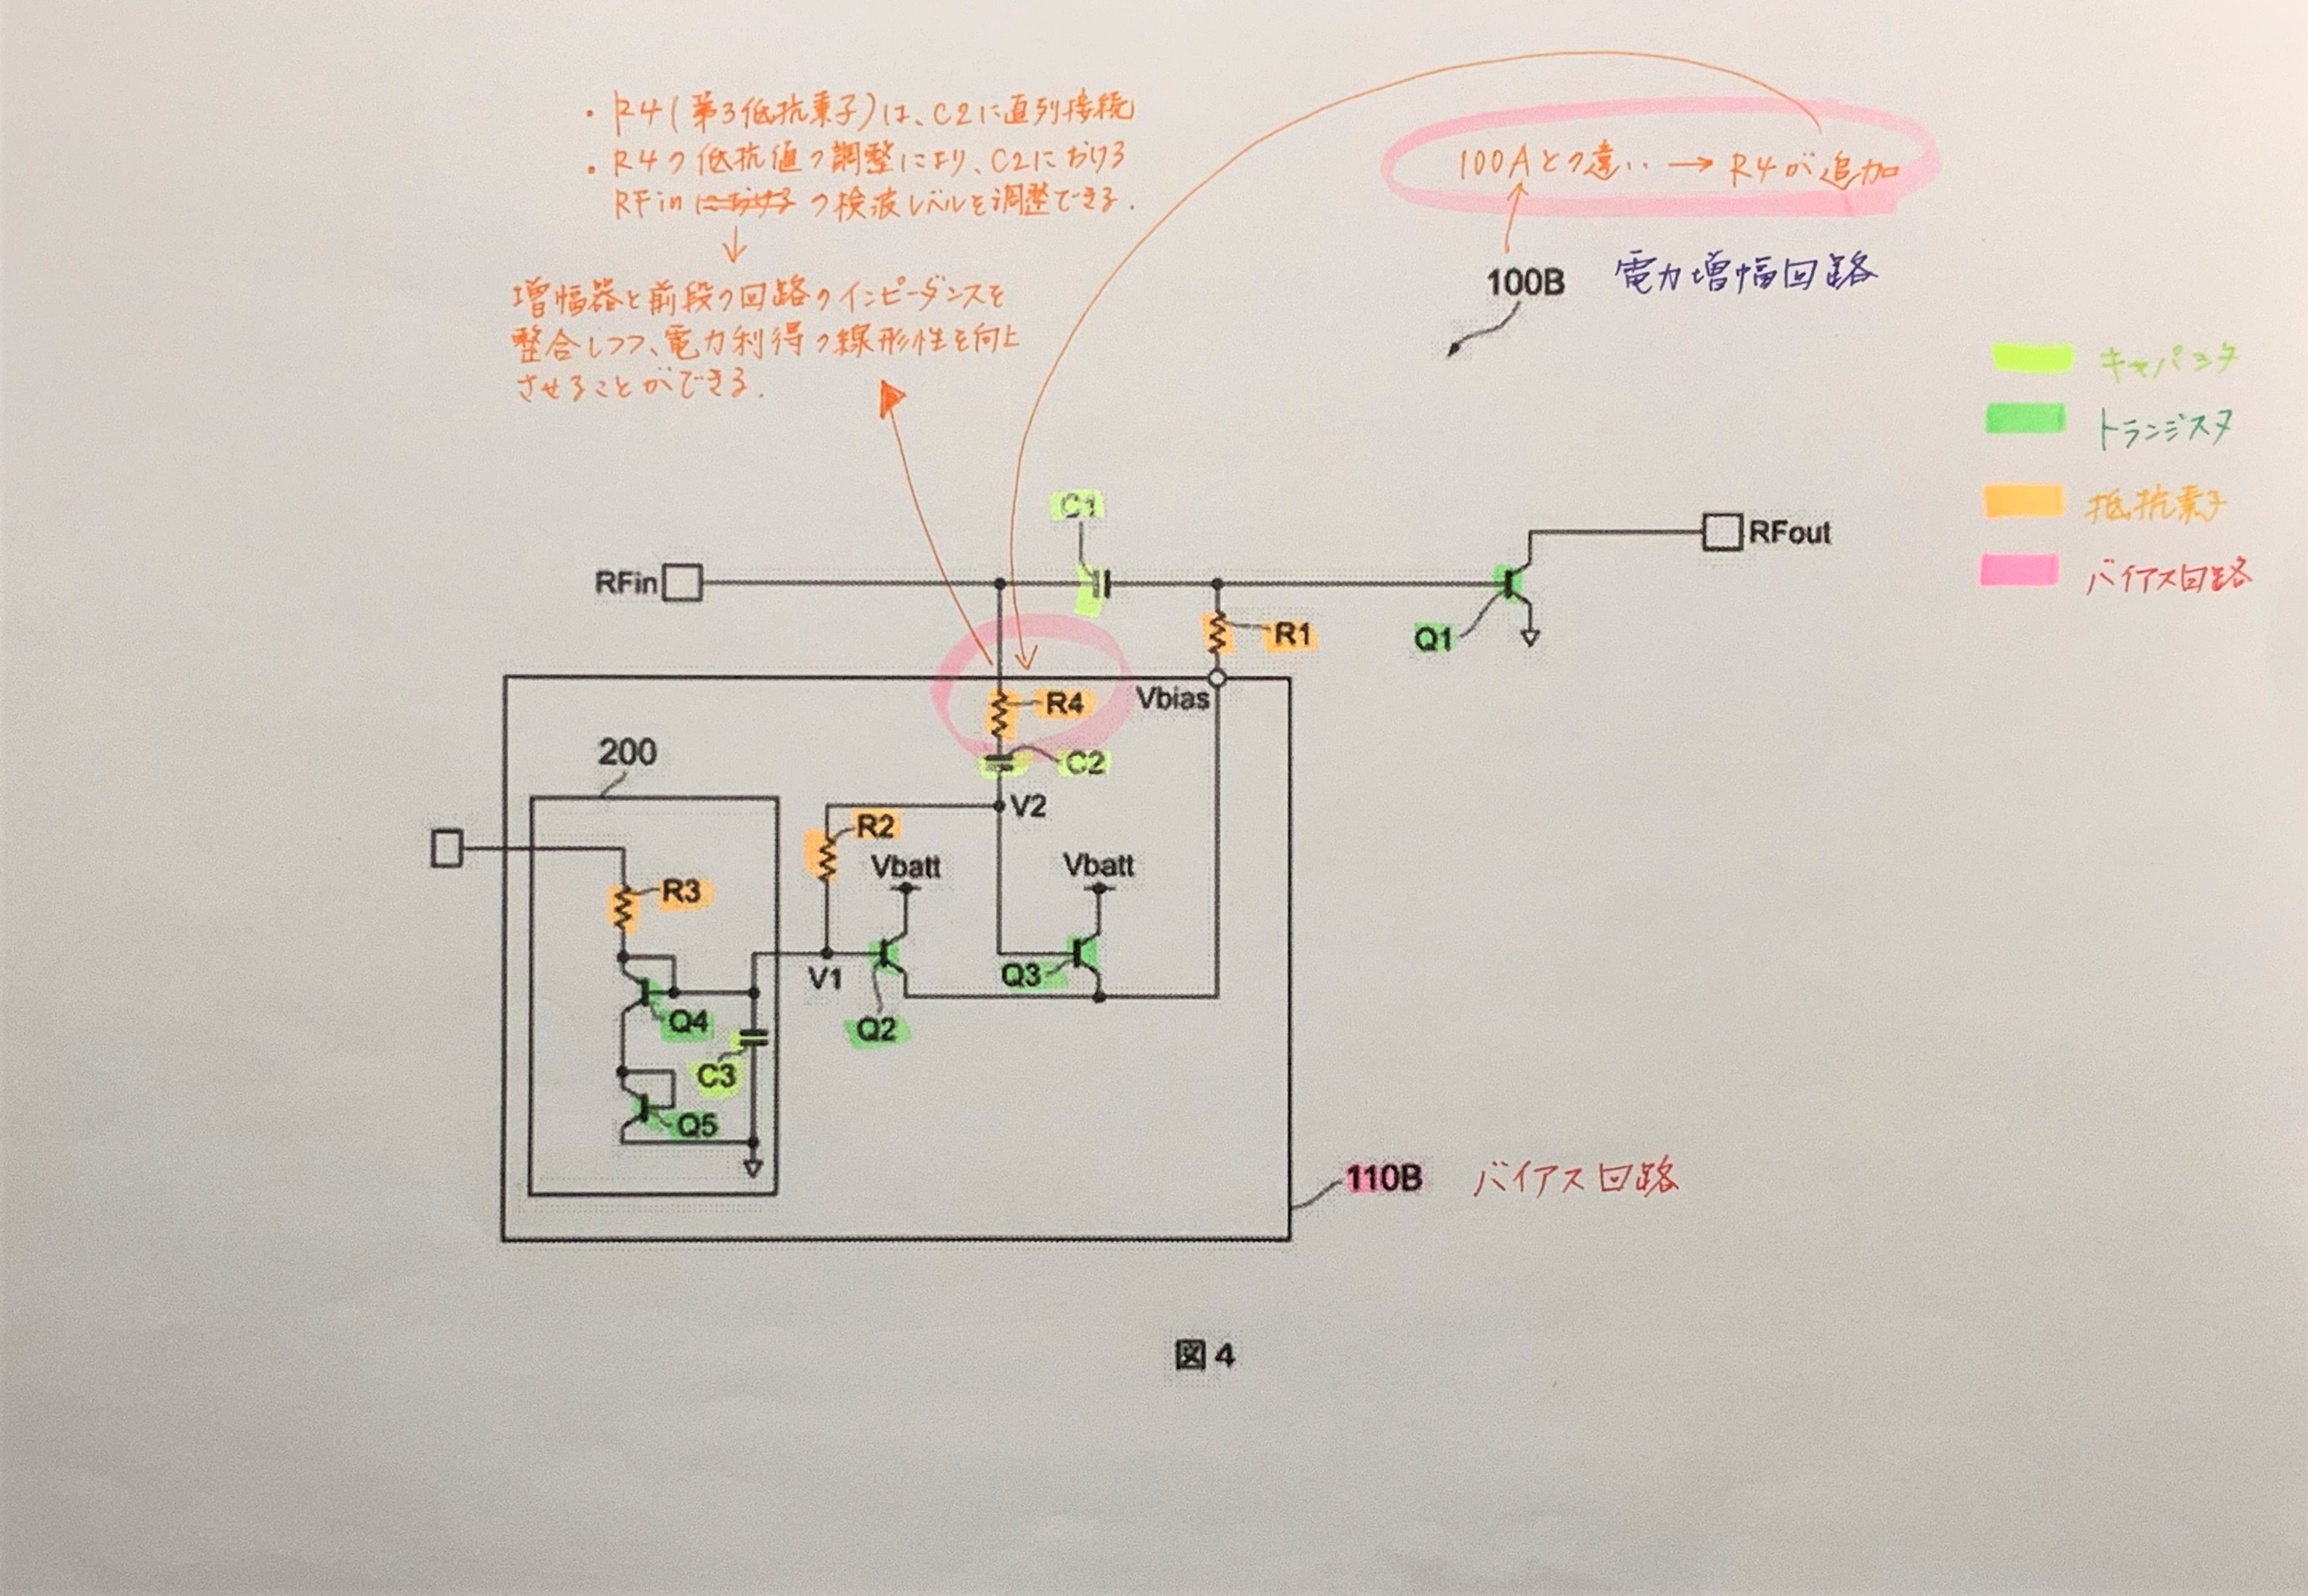 ・R4(第3低抗素子)は、C2に直列接続
・R4の低抗値の調整により、C2における
RFinにおけるの検波レベルを調整できる.
↓
増幅器と前段の回路のインピーダンスを
整合しつつ、電力利得の線形性を向上
させることができる.
100Aとの違い → R4が追加
100B 電力増幅回路
キャパシタ
トランジスタ
抵抗素子
バイアス回路
C1
RFout
RFin
R1
Q1
R4
Vbias
200
C2
V2
R2
Vbatt
Vbatt
R3
V1
Q3
Q4
Q2
C3
Q5
110B バイアス回路
図4